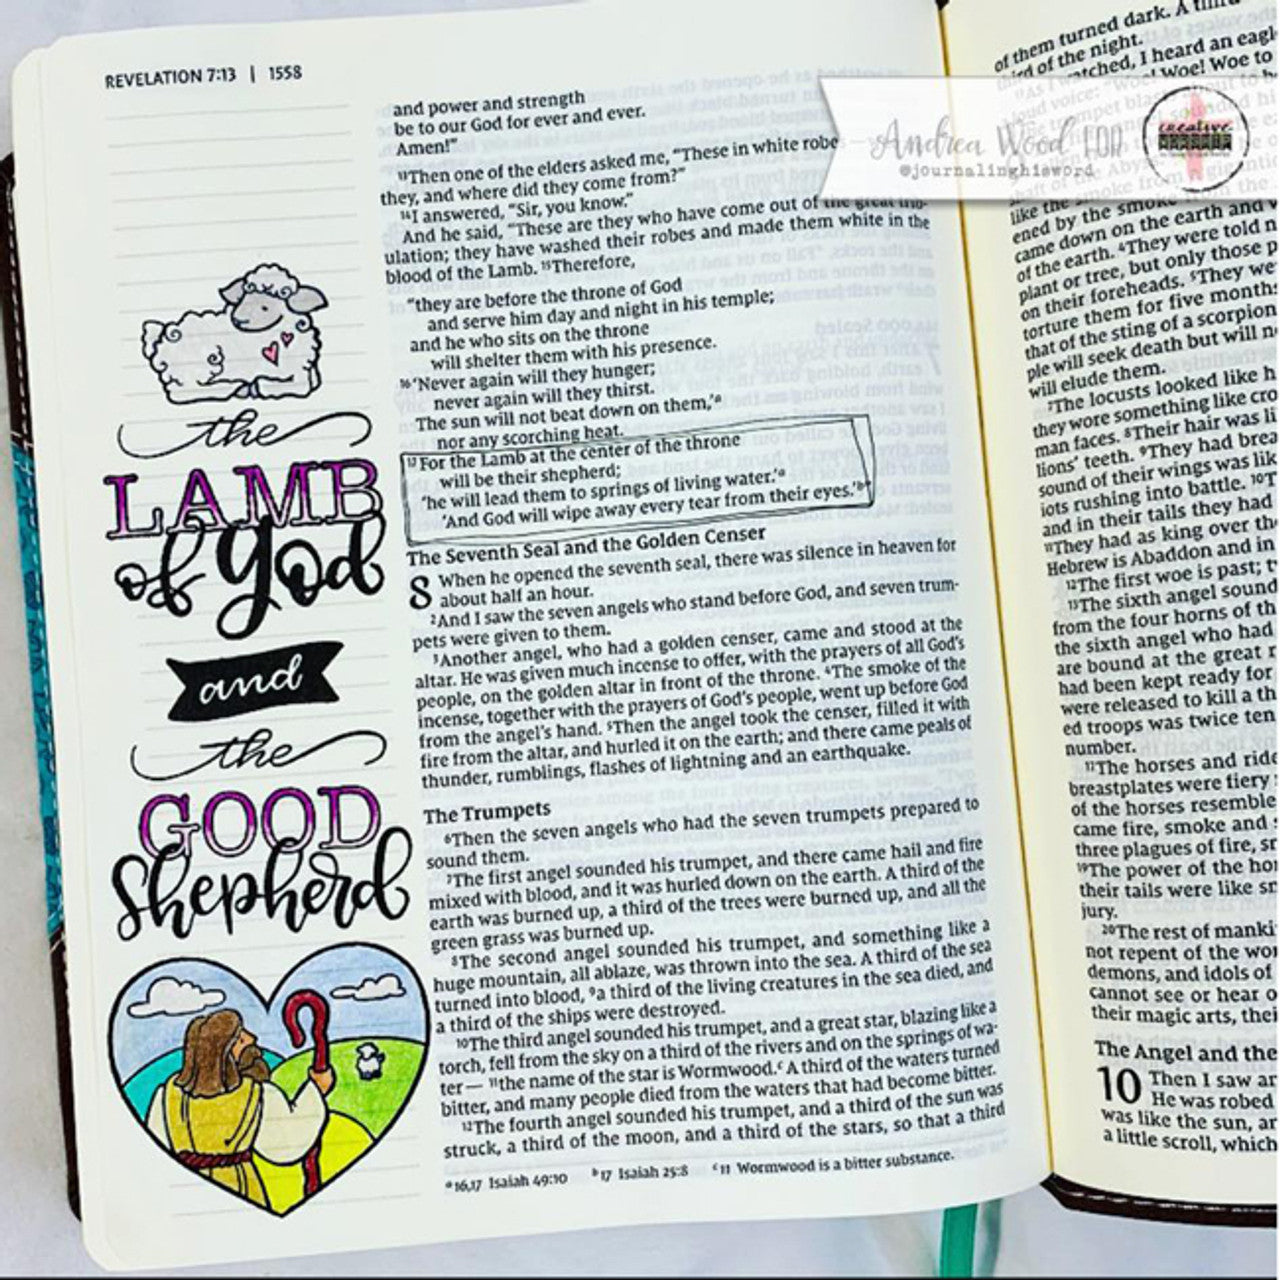 REVELATION 7:13 | 1558
the
LAMB
of God
and
the
GOOD
Shepherd
and power and strength
be to our God for ever and ever.
Amen!”
¹³Then one of the elders asked me, “These in white robe
they, and where did they come from?”
¹⁴I answered, “Sir, you know.”
And he said, “These are they who have come out of the great trib-
ulation; they have washed their robes and made them white in the
blood of the Lamb. ¹⁵Therefore,
“they are before the throne of God
and serve him day and night in his temple;
and he who sits on the throne
will shelter them with his presence.
¹⁶‘Never again will they hunger;
never again will they thirst.
The sun will not beat down on them,’ᵃ
nor any scorching heat.
¹⁷For the Lamb at the center of the throne
will be their shepherd;
‘he will lead them to springs of living water.’ᵃ
‘And God will wipe away every tear from their eyes.’ᵇ”
The Seventh Seal and the Golden Censer
8 When he opened the seventh seal, there was silence in heaven for
about half an hour.
²And I saw the seven angels who stand before God, and seven trum-
pets were given to them.
³Another angel, who had a golden censer, came and stood at the
altar. He was given much incense to offer, with the prayers of all God’s
people, on the golden altar in front of the throne. ⁴The smoke of the
incense, together with the prayers of God’s people, went up before God
from the angel’s hand. ⁵Then the angel took the censer, filled it with
fire from the altar, and hurled it on the earth; and there came peals of
thunder, rumblings, flashes of lightning and an earthquake.
The Trumpets
⁶Then the seven angels who had the seven trumpets prepared to
sound them.
⁷The first angel sounded his trumpet, and there came hail and fire
mixed with blood, and it was hurled down on the earth. A third of the
earth was burned up, a third of the trees were burned up, and all the
green grass was burned up.
⁸The second angel sounded his trumpet, and something like a
huge mountain, all ablaze, was thrown into the sea. A third of the sea
turned into blood, ⁹a third of the living creatures in the sea died, and
a third of the ships were destroyed.
¹⁰The third angel sounded his trumpet, and a great star, blazing like a
torch, fell from the sky on a third of the rivers and on the springs of wa-
ter— ¹¹the name of the star is Wormwood.ᶜ A third of the waters turned
bitter, and many people died from the waters that had become bitter.
¹²The fourth angel sounded his trumpet, and a third of the sun was
struck, a third of the moon, and a third of the stars, so that a third
ᵃ16,17 Isaiah 49:10 ᵇ17 Isaiah 25:8 ᶜ11 Wormwood is a bitter substance.
of them turned dark. A third
third of the night.
watched, I heard an eagl
voice: “Woe! Woe! Woe to
Andrea Wood FOR
@journalinghisword
creative
like the
ened by the smoke
came down on the earth and
of the earth. ⁴They were told n
plant or tree, but only those p
on their foreheads. ⁵They we
torture them for five months
that of the sting of a scorpion
ple will seek death but will n
will elude them.
⁷The locusts looked like h
they wore something like cro
man faces. ⁸Their hair was li
lions’ teeth. ⁹They had brea
sound of their wings was lik
iots rushing into battle. ¹⁰T
and in their tails they had
¹¹They had as king over th
Hebrew is Abaddon and in
¹²The first woe is past; t
¹³The sixth angel sound
from the four horns of th
the sixth angel who had
are bound at the great r
had been kept ready for
were released to kill a th
ed troops was twice ten
number.
¹⁷The horses and ride
breastplates were fiery
of the horses resemble
came fire, smoke and
three plagues of fire, sr
¹⁹The power of the hor
their tails were like sn
jury.
²⁰The rest of manki
not repent of the wor
demons, and idols of
cannot see or hear o
their magic arts, thei
The Angel and the
10 Then I saw an
He was robed
was like the sun, an
a little scroll, which